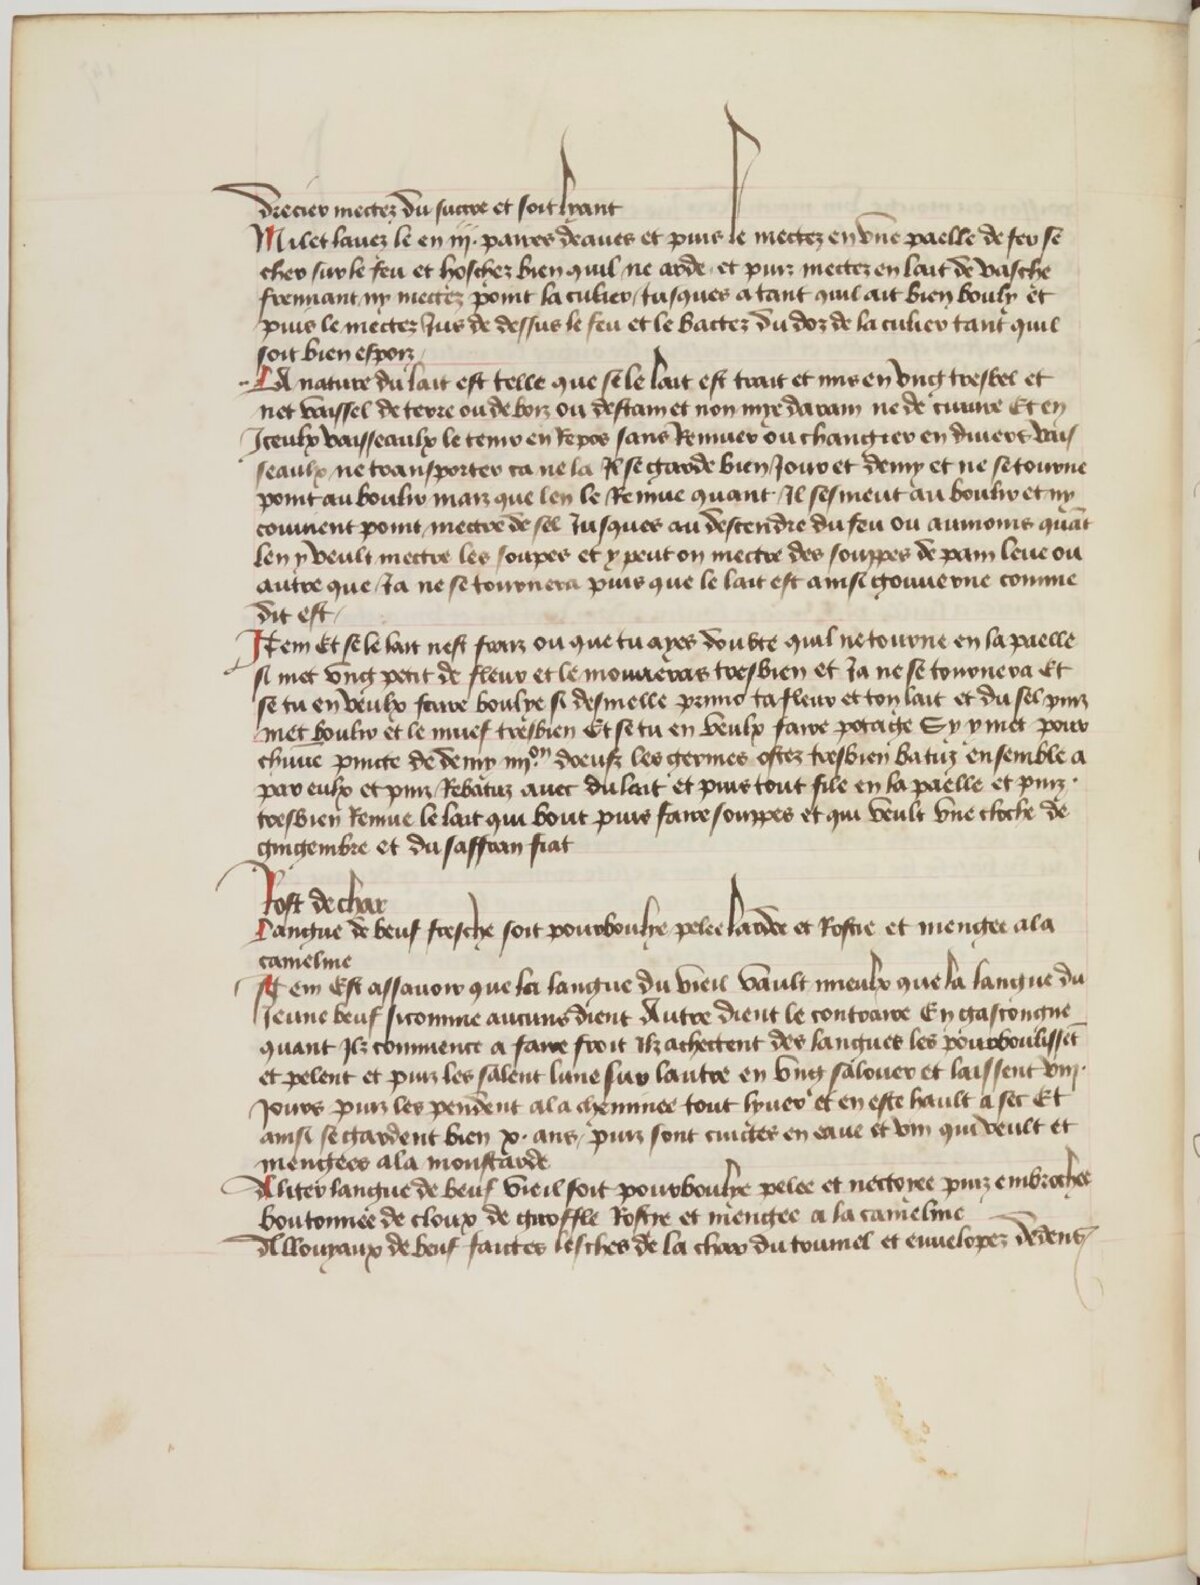 drecier mectez du succre et soit lyant
Milet lavez le en iij. paires deaues et puis le mectez en une paelle de fer se
cher sur le feu et hoschez bien quil ne arde. et puiz mectez en lait de vasche
fremiant ny mectez point la culier jusques a tant quil ait bien bouly et
puis le mectez jus de dessus le feu et le bactez du doz de la culier tant quil
soit bien espoiz
La nature du lait est telle que se le lait est trait et mis en ung tresbel et
net vaissel de terre ou de boiz ou destain et non mye darain ne de cuivre Et en
Iceulx vaisseaulx le tenir en Repos sans Remuer ou changier en divers vais
seaulx ne transporter ca ne la Il se garde bien jour et demy et ne se tourne
point au boulir maiz que len le Remue quant Il sesmeut au boulir et ny
convient point mectre de sel jusques au descendre du feu ou aumoins quāt
len y veult mectre les soupes et y peut on mectre des souppes de pain leve ou
autre que ja ne se tournera puis que le lait est ainsi gouverne comme
dit est
Item Et se le lait nest fraiz ou que tu ayes doubte quil ne tourne en la paelle
si met ung petit de fleur et le mouveras tresbien et ja ne se tournera Et
se tu en veulx faire boulye si desmelle primo ta fleur et ton lait et du sel puiz
met boulir et le muef tresbien Et se tu en veulx faire potage Sy y met pour
chūne pincte de demy iiij.on doeufz les germes ostez tresbien batuz ensemble a
par eulx et puiz Rebatuz avec du lait et puis tout file en la paelle et puiz
tresbien Remue le lait qui bout puis faire souppes et qui veult une cloche de
gingembre et du saffran fiat
Rost de char
Langue de beuf fresche soit pourboulye pelee lardee et Rostie et mengee a la
cameline
Item Est assavoir que la langue du vieil vault mieulx que la langue du
jeune beuf sicomme aucuns dient Autre dient le contraire En gascongne
quant Ilz commence a faire froit Ilz achectent des langues les pourboulissēt
et pelent et puiz les salent lune sur lautre en ung salouer et laissent viij.
jours puiz les pendent a la cheminee tout lyver et en este hault a sec Et
ainsi se gardent bien x. ans, puiz sont cuictes en eaue et vin qui veult et
mengees a la moustarde
Aliter langue de beuf vieil soit pourboulye pelee et nectoiee puiz embrochee
boutonnee de cloux de giroffle Rostye et mengee a la cameline
Allouyaux de beuf faictes lesches de la char du trumel et envelopez dedens